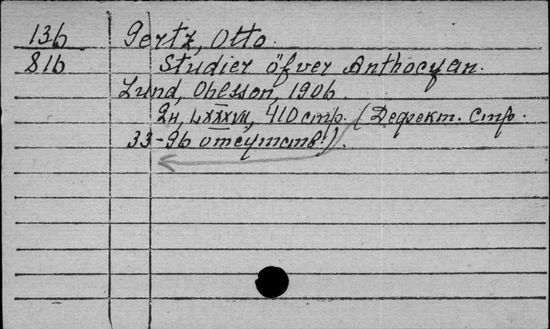 136 Gertz, Otto.
816 Studier öfver Anthocyan.
Lund, Ohlsson, 1906.
2н, LXXXVII, 410 стр. (Дефект. Стр.
33-96 отсутств!).